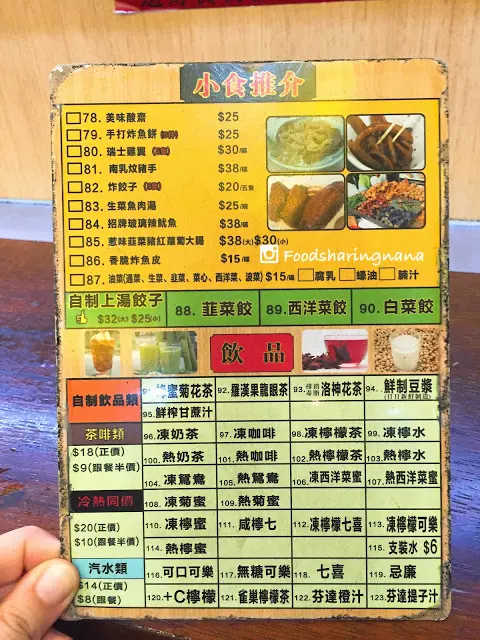 小食推介
78. 美味酸齋 $25
79. 手打炸魚餅 $25
80. 瑞士雞翼 $30/碟
81. 南乳炆豬手 $38/碟
82. 炸餃子 $20/五隻
83. 生菜魚肉湯 $25/碗
84. 招牌玻璃辣魷魚 $38/碟
85. 惹味韮菜豬紅蘿蔔大腸 $38(大)$30(小)
86. 香脆炸魚皮 $15/碟
87. 油菜(通菜、生菜、韭菜、菜心、西洋菜、波菜) $15/碟 腐乳 蠔油 腩汁
Foodsharingnana
自制上湯餃子
$32(大) $25(小)
88. 韮菜餃
89. 西洋菜餃
90. 白菜餃
飲品
自制飲品類
91. 蜂蜜菊花茶
92. 羅漢果龍眼茶
93. 洛神花茶
94. 鮮制豆漿
(甘日新鮮制造)
95. 鮮榨甘蔗汁
茶啡類
96. 凍奶茶
97. 凍咖啡
98. 凍檸檬茶
99. 凍檸水
$18(正價)
$9(跟餐半價)
100. 熱奶茶
101. 熱咖啡
102. 熱檸檬茶
103. 熱檸水
104. 凍鴛鴦
105. 熱鴛鴦
106. 凍西洋菜蜜
107. 熱西洋菜蜜
冷熱同價
108. 凍菊蜜
109. 熱菊蜜
$20(正價)
$10(跟餐半價)
110. 凍檸蜜
111. 咸檸七
112. 凍檸檬七喜
113. 凍檸檬可樂
114. 熱檸蜜
115. 支裝水 $6
汽水類
116. 可口可樂
117. 無糖可樂
118. 七喜
119. 忌廉
$14(正價)
$8(跟餐)
120. +C檸檬
121. 雀巢檸檬茶
122. 芬達橙汁
123. 芬達提子汁